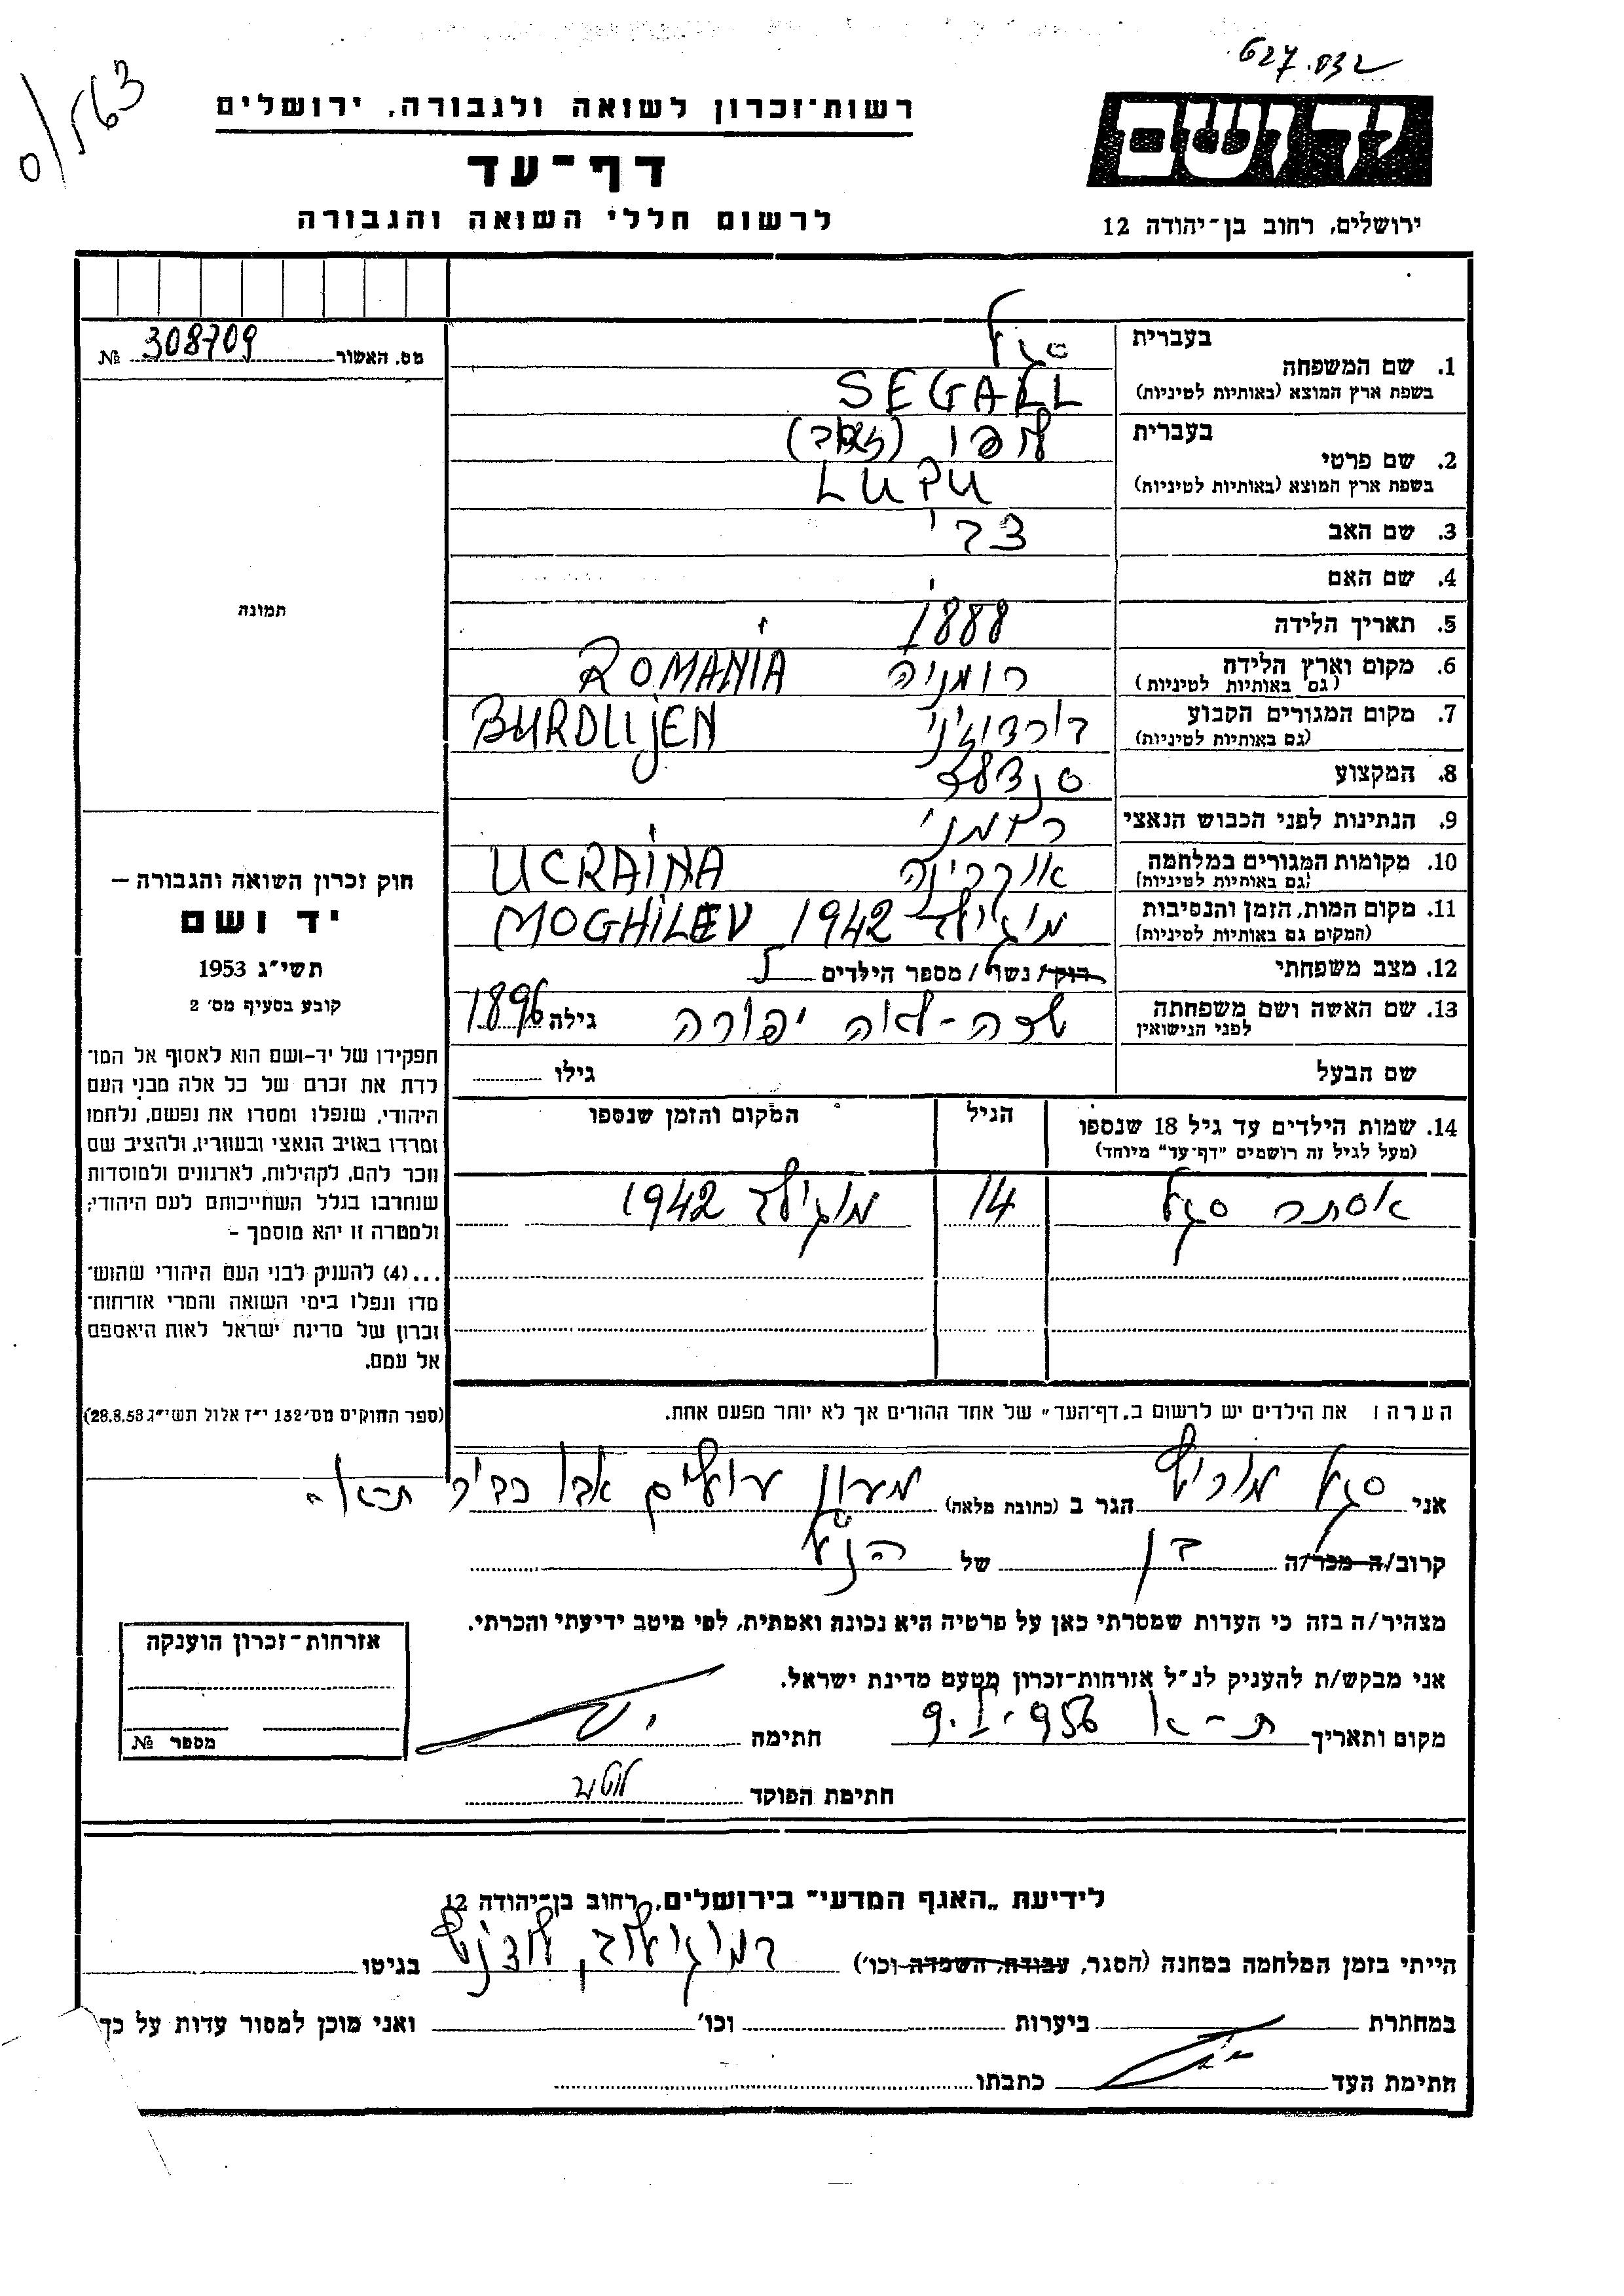 627.032
0/563
רשות־זכרון לשואה ולגבורה, ירושלים
ידושם
דף־עד
לרשום חללי השואה והגבורה
ירושלים, רחוב בן־יהודה 12
מס. האשור 308709 №
תמונה
בעברית
1. שם המשפחה
סגל
בשפת ארץ המוצא (באותיות לטיניות)
SEGALL
בעברית
2. שם פרטי
לופו (זאב)
בשפת ארץ המוצא (באותיות לטיניות)
LUPU
3. שם האב צבי
4. שם האם
5. תאריך הלידה 1888
6. מקום וארץ הלידה רומניה ROMANIA
(גם באותיות לטיניות)
7. מקום המגורים הקבוע BURDUJEN
(גם באותיות לטיניות)
8. המקצוע סנדלר
9. הנתינות לפני הכבוש הנאצי רומני
10. מקומות המגורים במלחמה אוקרינה UCRAINA
(גם באותיות לטיניות)
11. מקום המות, הזמן והנסיבות מוגילב 1942 MOGHILEV
(המקום גם באותיות לטיניות)
12. מצב משפחתי רוק/נשוי/מספר הילדים 5
13. שם האשה ושם משפחתה שרה-לאה גילה 1896
לפני הנישואין
שם הבעל גילו
14. שמות הילדים עד גיל 18 שנספו הגיל המקום והזמן שנספו
(מעל לגיל זה רושמים "דף־עד" מיוחד)
אסתר סגל 14 מוגילב 1942
הערה: את הילדים יש לרשום ב„דף־העד" של אחד ההורים אך לא יותר מפעם אחת.
חוק זכרון השואה והגבורה —
יד ושם
תשי"ג 1953
קובע בסעיף מס' 2
תפקידו של יד-ושם הוא לאסוף אל המו־
לדת את זכרם של כל אלה מבני העם
היהודי, שנפלו ומסרו את נפשם, נלחמו
ומרדו באויב הנאצי ובעוזריו, ולהציב שם
וזכר להם, לקהילות, לארגונים ולמוסדות
שנחרבו בגלל השתייכותם לעם היהודי;
ולמטרה זו יהא מוסמך –
...(4) להעניק לבני העם היהודי שהוש־
מדו ונפלו בימי השואה והמרי אזרחות־
זכרון של מדינת ישראל לאות היאספם
אל עמם.
(ספר החוקים מס' 132 י"ז אלול תשי"ג 28.8.53)
אני סגל מוריס הגר ב (כתובת מלאה) מעון עולים אבו כביר ת-א
קרוב/ה מכר/ה בן של הנ"ל
מצהיר/ה בזה כי העדות שמסרתי כאן על פרטיה היא נכונה ואמתית, לפי מיטב ידיעתי והכרתי.
אני מבקש/ת להעניק לנ"ל אזרחות-זכרון מטעם מדינת ישראל.
מקום ותאריך ת-א 9.I.956 חתימה
חתימת הפוקד
אזרחות-זכרון הוענקה
מספר №
לידיעת „האגף המדעי" בירושלים, רחוב בן־יהודה 12
הייתי בזמן המלחמה במחנה (הסגר, עבודה, השמדה וכו') במוגילוב, בגיטו
במחתרת ביערות וכו' ואני מוכן למסור עדות על כך
חתימת העד כתבתו